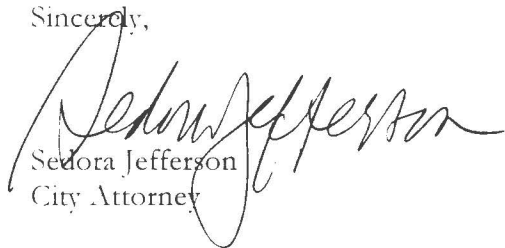 Sincerely,
Sedora Jefferson
Sedora Jefferson
City Attorney